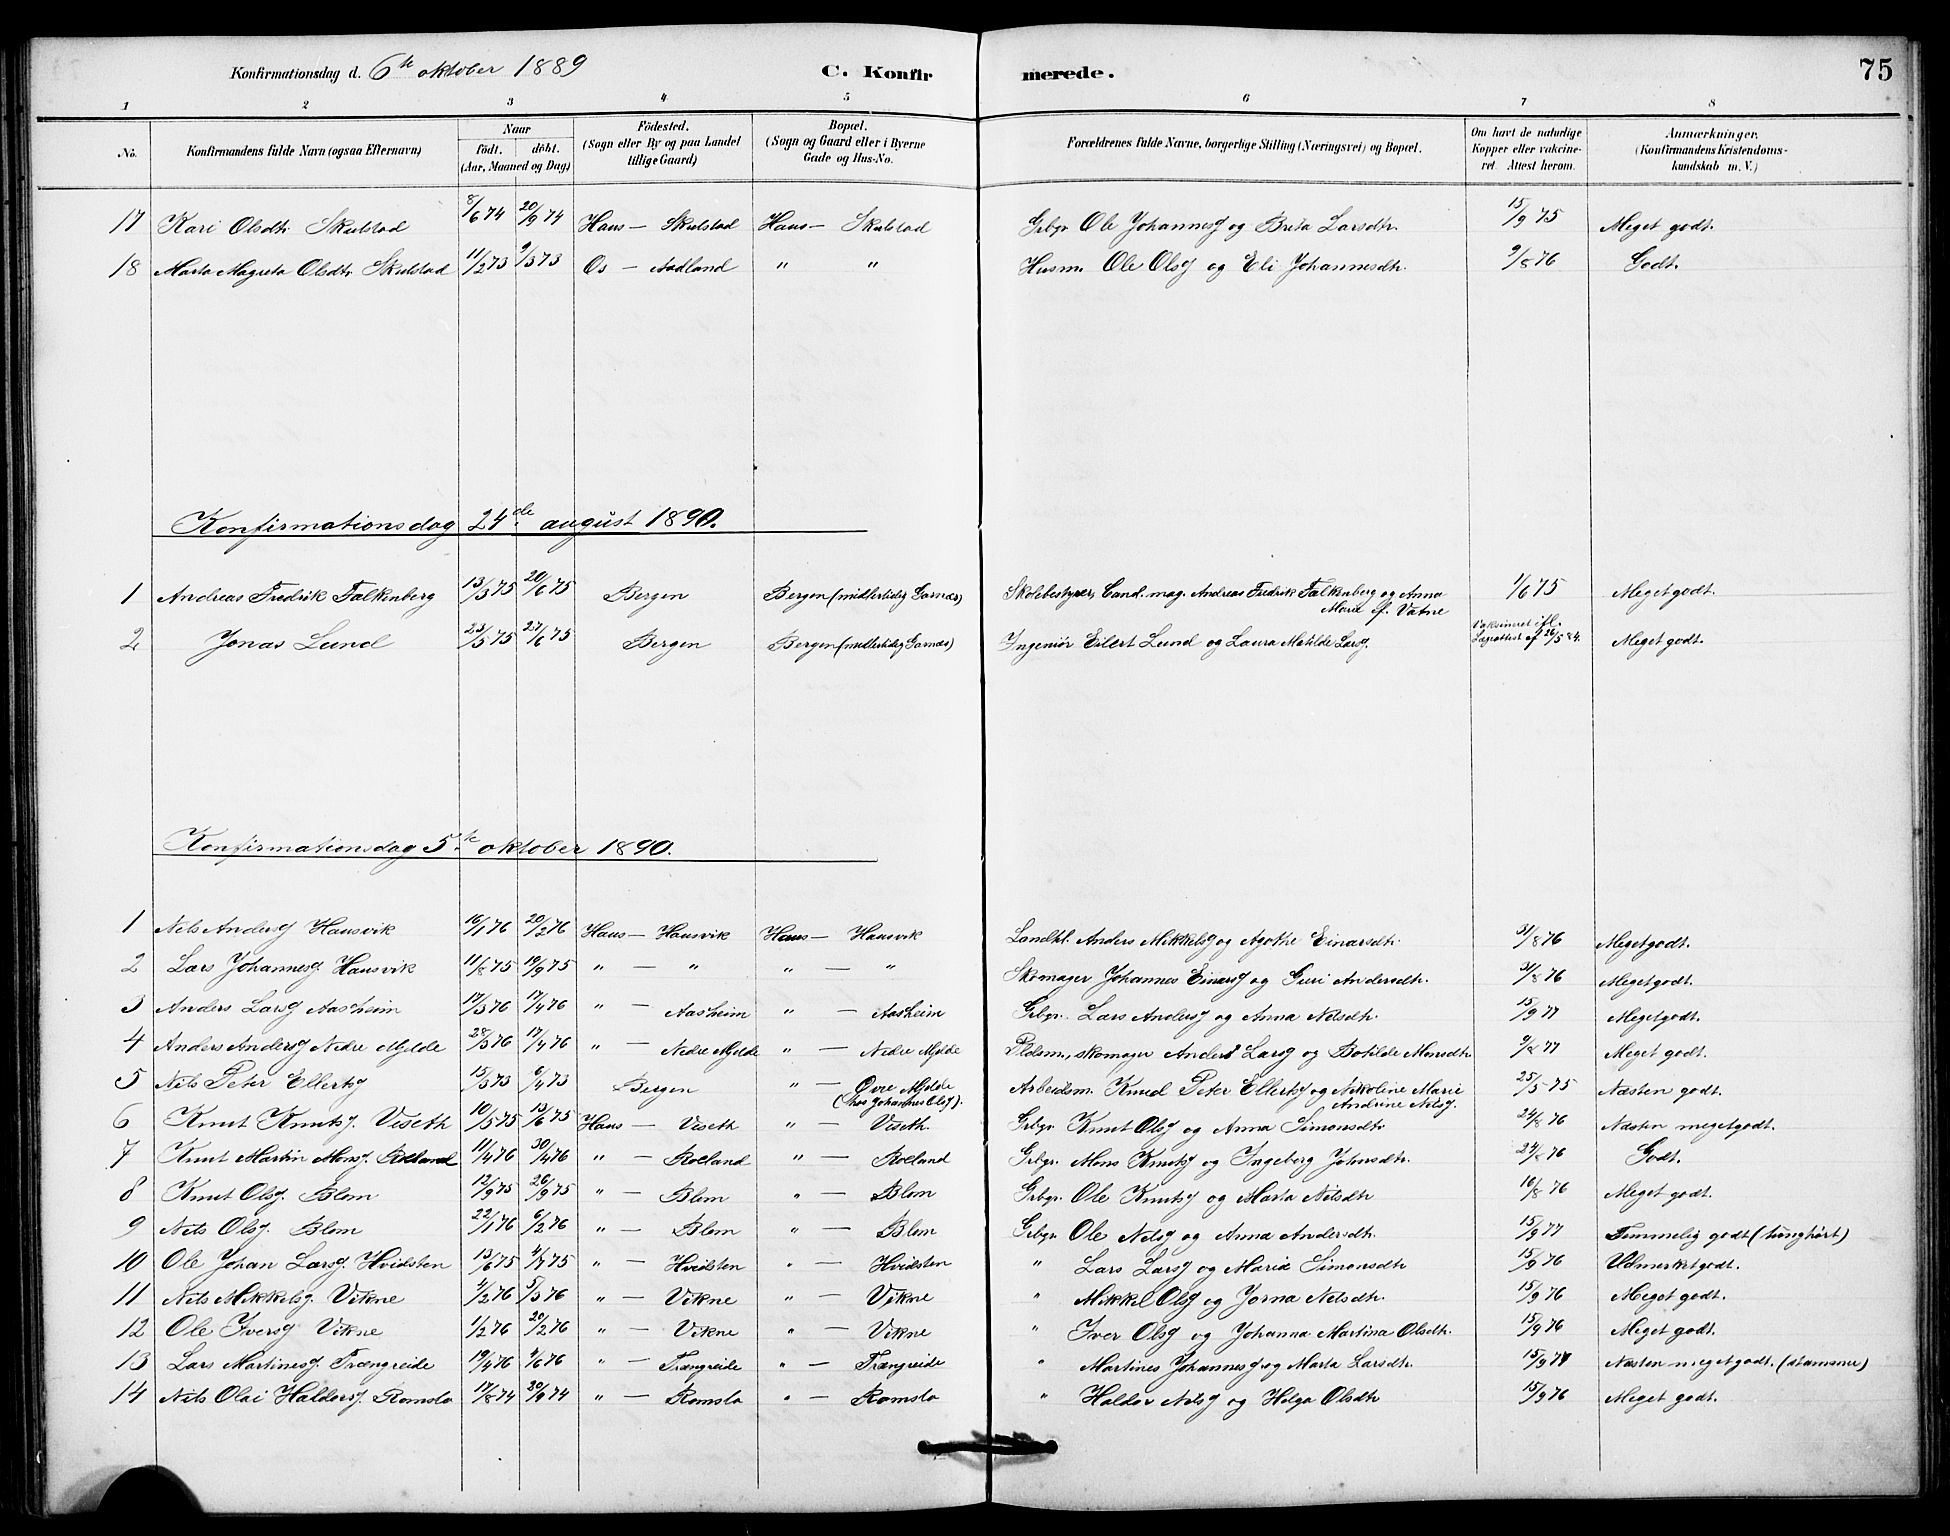 Konfirmationsdag d. 6te oktober 1889 C. Konfirmerede. 75
1 2 3 4 5 6 7 8
No. Konfirmandens fulde Navn (ogsaa Efternavn) Naar födt. döbt. (Aar, Maaned og Dag) Födested. (Sogn eller By og paa Landet tillige Gaard) Bopæl. (Sogn og Gaard eller i Byerne Gade og Hus-No. Forældrenes fulde Navne, borgerlige Stilling (Næringsvei) og Bopæl. Om havt de naturlige Kopper eller vakcineret. Attest herom. Anmærkninger. (Konfirmandens Kristendomskundskab m. V.)
17 Kari Olsdtr. Skulstad 8/6 74 20/9 74 Haus — Skulstad Haus — Skulstad Grbgr. Ole Johannesg og Brita Larsdtr. 15/9 75 Meget godt.
18 Marta Magreta Olsdtr. Skulstad 11/2 73 9/3 73 Os — Aadland " " Husm. Ole Olsg og Eli Johannesdtr. 9/8 76 Godt.
Konfirmationsdag 24de august 1890.
1 Andreas Fredrik Falkenberg 13/3 75 20/6 75 Bergen Bergen (midlertidig Garnæs) Skolebestyrer, Cand. mag. Andreas Fredrik Falkenberg og Anna 1/6 75 Meget godt.
Marie f. Vatne
2 Jonas Lund 23/5 75 27/6 75 Bergen Bergen (midlertidig Garnæs) Ingeniör Eilert Lund og Laura Matilde Larsg. Vaksineret ifl. Lægeattest af 26/5 84. Meget godt.
Konfirmationsdag 5te oktober 1890.
1 Nils Andersg Hausvik 16/1 76 20/2 76 Haus — Hausvik Haus — Hausvik Landhl. Anders Mikkelsg og Agothe Einarsdtr. 31/8 76 Meget godt.
2 Lars Johannesg. Hausvik 11/8 75 19/9 75 " — " " — " Skomager Johannes Einarsg og Guri Andersdtr. 31/8 76 Meget godt.
3 Anders Larsg Aasheim 17/3 76 17/4 76 " — Aasheim " — Aasheim Grbgr. Lars Andersg og Anna Nilsdtr. 15/9 77 Meget godt.
4 Anders Andersg Nedre Mjelde 28/3 76 17/4 76 " — Nedre Mjelde " — Nedre Mjelde Pldsm., skomager Anders Larsg og Botilde Monsdtr. 9/8 77 Meget godt.
5 Nils Peter Ellertsg 15/3 73 6/4 73 Bergen " — Övre Mjelde Arbeidsm. Knud Peter Ellertsg og Nikoline Marie 25/5 75 Næsten godt.
(hos Johannes Olsg). Andrine Nilsg.
6 Knut Knutsg. Viseth 10/5 75 13/6 75 Haus — Viseth " — Viseth. Grbgr Knut Olsg og Anna Simonsdtr 24/8 76 Næsten meget godt.
7 Knut Martin Monsg. Roeland 11/4 76 30/4 76 " — Roeland " — Roeland Grbgr. Mons Knutsg og Ingeborg Johnsdtr. 24/8 76 Godt.
8 Knut Olsg. Blom 12/9 75 26/9 75 " — Blom " — Blom Grbgr. Ole Knutsg og Marta Nilsdtr 16/8 76 Meget godt.
9 Nils Olsg. Blom 22/1 76 6/2 76 " — Blom " — Blom Grbgr. Ole Nilsg og Anna Andersdtr. 15/9 77 Temmelig godt (tunghört)
10 Ole Johan Larsg. Hvidsten 13/6 75 4/7 75 " — Hvidsten " — Hvidsten " Lars Larsg og Maria Simonsdtr 15/9 76 Udmerket godt.
11 Nils Mikkelsg. Vikne 1/2 76 5/3 76 " — Vikne " — Vikne " Mikkel Olsg og Jorna Nilsdtr. 15/9 76 Meget godt.
12 Ole Iversg Vikne 1/2 76 20/2 76 " — Vikne " — Vikne " Iver Olsg og Johanna Martina Olsdtr. 15/9 76 Meget godt.
13 Lars Martinesg. Trængreide 19/4 76 4/6 76 " — Trængreide " — Trængreide " Martines Johannesg og Marta Larsdtr. 15/9 77 Næsten meget godt. (stammer)
14 Nils Olai Haldorsg. Romslo 17/8 74 20/9 74 " — Romslo " — Romslo " Haldor Nilsg og Helga Olsdtr 15/9 76 Meget godt.